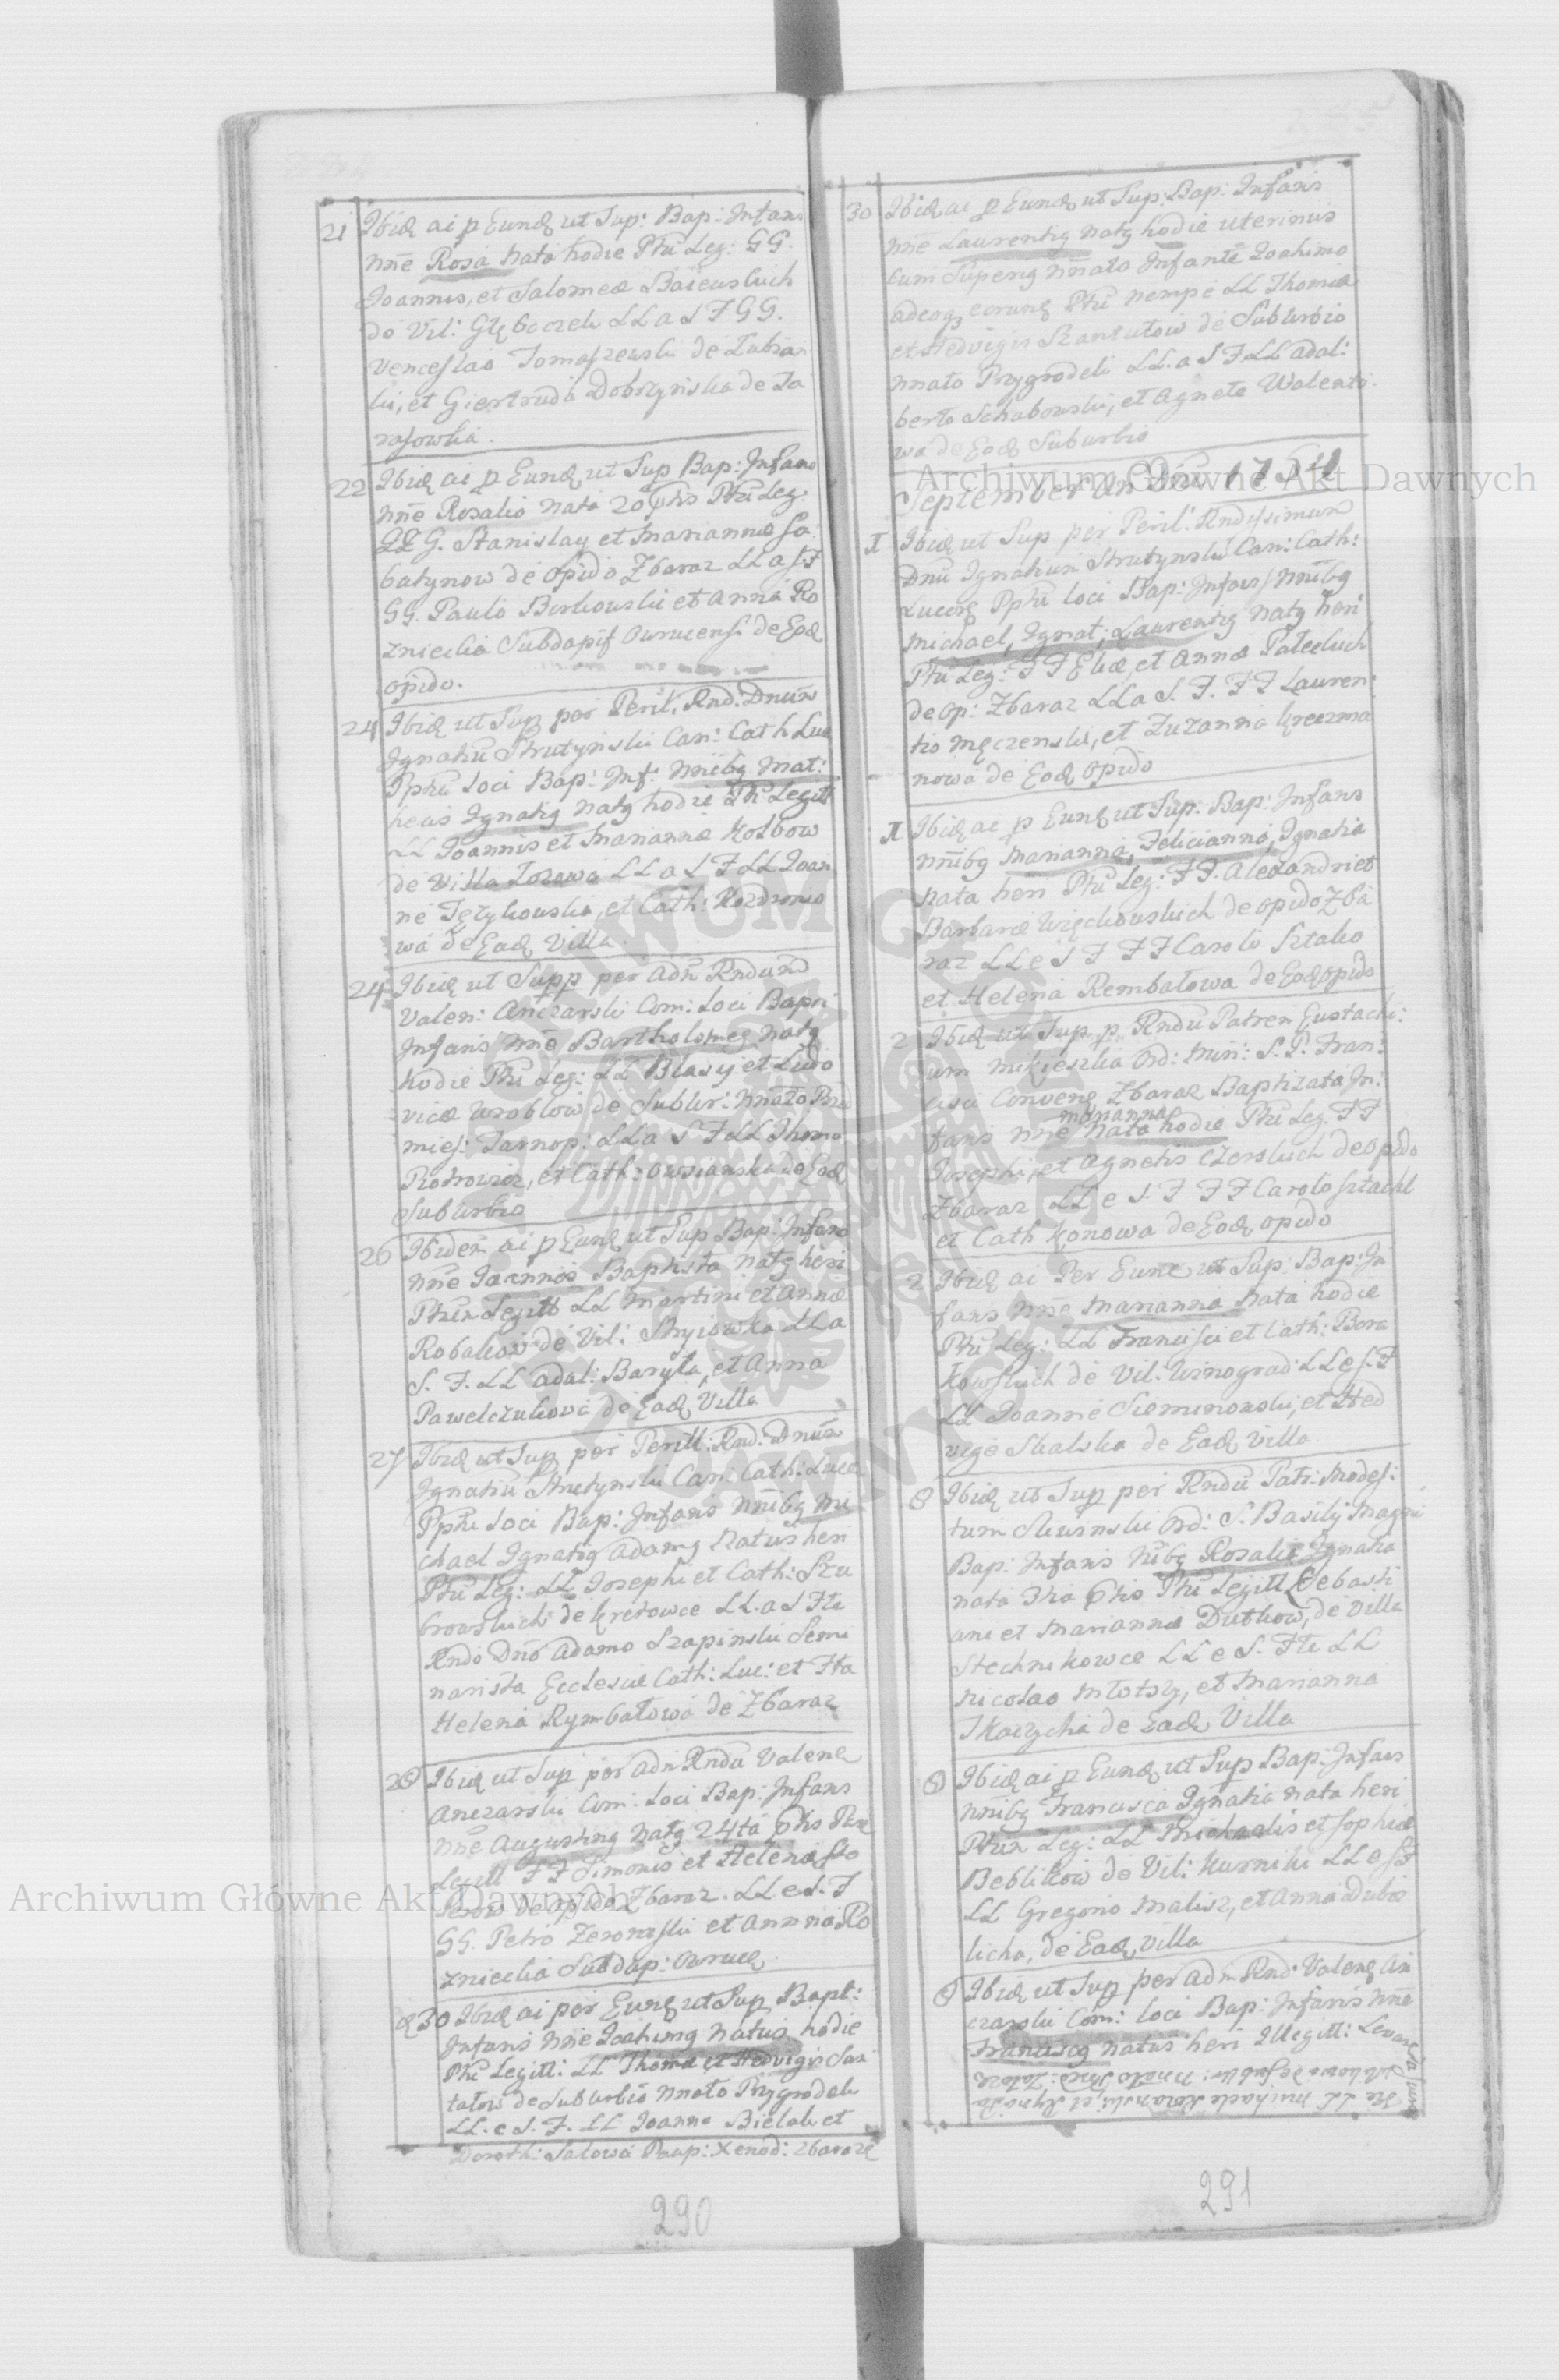 21 Ibid ai p Eund ut Sup: Bap: Infans
nne Rosa nata hodie Ptu Leg: GG.
Joannis, et Salomeæ Baiewskich
de Vil: Głęboczek LL a S F GG.
Venceslao Tomaszewski de Lubian
ki, et Giertruda Dobrzynska de Ta
rasowka.
22 Ibid ai p Eund ut Sup Bap: Infans
nne Rosalia nata 20 phis Ptu Leg:
GG. Stanislay et Mariannæ Sa:
batynow de Opido Zbaraz LL a S F
GG. Paulo Borkowski et Anna Ro
zniecka Subdapif Owrucens. de Eod
opido.
24 Ibid ut Sup per Peril: Rnd: Dnum
Ignatiu Strutynski Can: Cath Luc
Pptu Loci Bap: Inf: nnibg Mat:
heus Ignatig natg hodie Ptu Legitt
LL Joannis et Mariannæ Kolbow
de Villa Lozowa LL a S F LL Joan
ne Tężykowski, et Cath: Kozdronio
wa de Ead Villa.
24 Ibid ut Supp per Adm Rndum
Valen: Anczarski Com: Loci Bapti
Infans nne Bartholomeg natg
hodie Ptu Leg: LL Blasij et Ludo
vicæ Wroblow de Suburb: nnato Prze
mies: Tarnop: LL a S F LL Thoma
Piotrowicz, et Cath: Owsianska de Eod
Suburbio
26 Ibidem ai p Eund ut Sup Bap: Infans
nne Joannes Baptista natg heri
Ptum Legitt LL Martini et Annæ
Robakow de Vil: Stryiowka LL a
S. F. LL Adal: Baryła, et Anna
Pawelczukowa de Ead Villa
27 Ibid ut Sup per Perill: Rnd: Dnum
Ignatiu Strutynski Can: Cath: Luce
Pptu Loci Bap: Infans nnibg Mi
chael Ignatig Adamg natus heri
Ptu Leg: LL Josephi et Cath: Szu
browskich de Kretowce LL a S Fte
Rndo Dno Adamo Szapinski Semi
narista Ecclesiæ Cath: Luc: et Fta
Helena Rymbałowa de Zbaraz
28 Ibid ut Sup per Adm Rndu Valend
Anczarski Com: Loci Bap: Infans
nne Augusting natg 24ta phis Ptu
Legitt FF Simonis et Helenæ
de Opido Zbaraz. LL e S. F
GG. Petro et Anna Ro
zniecka Subdap: Owruce
30 Ibid ai per Eund ut Sup Bapt:
Infans nne Joahimg natus hodie
Ptu Legitt: LL Thomæ et Hedvigis Szan
tułow de Suburbio nnato Przygrodek
LL. e S. F. LL Joanne Bielak et
Doroth: Salowa Paup: Xenod: Zbaraze
290
30 Ibid ai p Eund ut Sup: Bap: Infans
nne Laurentig natg hodie uterinus
cum Superig nnato Infante Joahimo
adeoqz eorund Ptu nempe LL Thomæ
et Hedvigis Szantułow de Suburbio
nnato Przygrodek LL. a S F LL Adal:
berto Schabowski, et Agnete Walenti:
wa de Eod Suburbio
September An Dni 1754
1 Ibid ut Sup per Peril: Rndissimum
Dnu Ignatium Strutynski Can: Cath:
Luceor Pptu loci Bap: Infans nnibg
Michael, Ignat: Laurentig natg heri
Ptu Leg: FF Eliæ, et Annæ Pałeckich
de Op: Zbaraz LL a S. F. FF Lauren:
tio Męczenski, et Zuzanna Kreczma
nowa de Eod Opido
1 Ibid ai p Eund ut Sup: Bap: Infans
nnibg Marianna, Felicianna, Ignatia
nata heri Ptu Leg: FF. Alexandri et
Barbaræ Więckowskich de opido Zba
raz LL e S F FF Carolo Sztako
et Helena Rembałowa de Eod opido
2 Ibid ut Sup. p. Rndu Patrem Eustachi:
um Mikieszka Ord: Min: S. P. Fran:
cisci Convent Zbaraz Baptizata In:
fans nne Marianna nata hodie Ptu Leg: FF
Josephi, et Agnetis Czerskich de opido
Zbaraz LL e S. F FF Carolo Sztachl
et Cath Konowa de Eod opido
2 Ibid ai Per Eund ut Sup: Bap: In
fans nne Marianna nata hodie
Ptu Leg: LL Francisci et Cath: Bora
kowskich de Vil: Winograd: LL e S. F
LL Joanne Sieminowski, et Hed
vige Skalska de Ead Villa
8 Ibid ut Sup per Rndu Patr: Modes:
tum Sliwinski Ord: S. Basilij Magni
Bap: Infans nnibg Rosalia Ignatia
nata 7ma phis Ptu Legitt Sebasti
ani et Mariannæ Dutkow, de Villa
Stechnikowce LL e S. Fte LL
Nicolao Młotsz, et Marianna
Tkaczycha de ead Villa
8 Ibid ai p Eund ut Sup Bap: Infans
nnibg Francisca Ignatia nata heri
Ptum Leg: LL Michaelis et Sophiæ
Beblikow de Vil: Kurniki LL e S F
LL Gregorio Malisz, et Anna Dubis
licha, de Ead Villa
8 Ibid ut Sup per Adm Rnd: Valend An
czarski Com: loci Bap: Infans nne
Franciscg natus heri Illegitt:
291
Archiwum Główne Akt Dawnych
Archiwum Główne Akt Dawnych